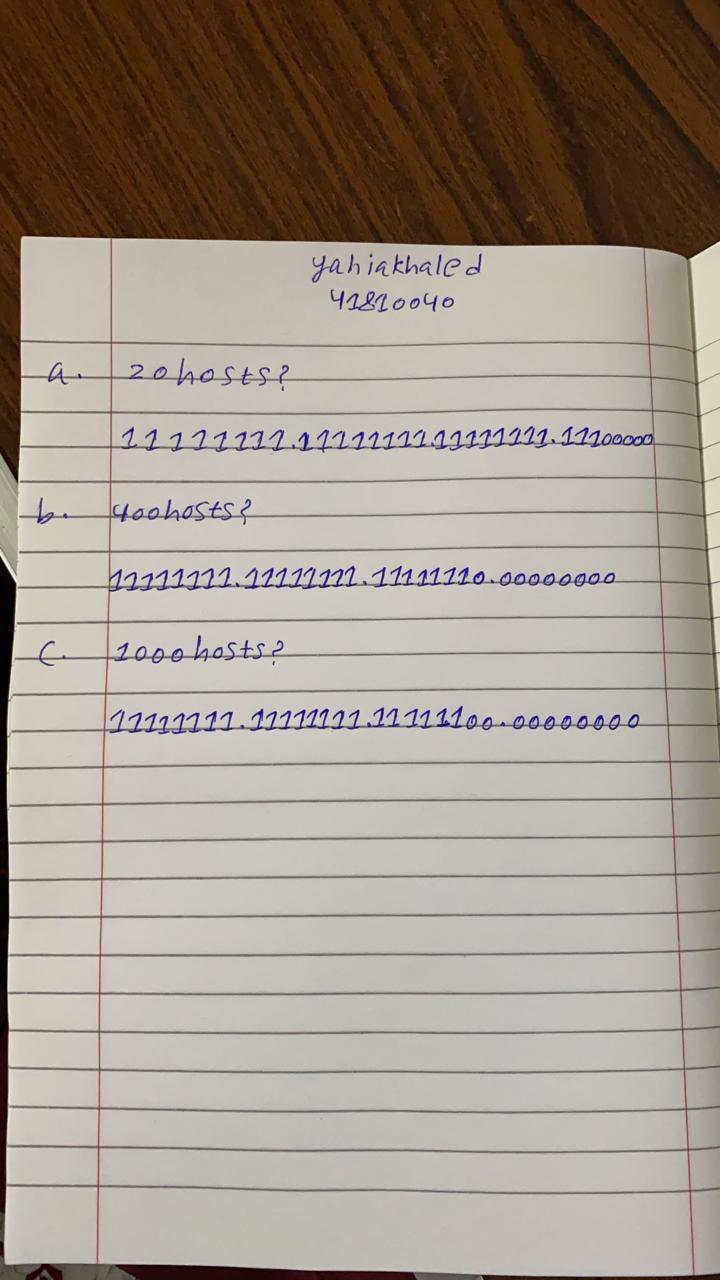 yahiakhaled
41810040
a. 20hosts?
11111111.11111111.11111111.11100000
b. 400hosts?
11111111.11111111.11111110.00000000
c. 1000hosts?
11111111.11111111.11111100.00000000